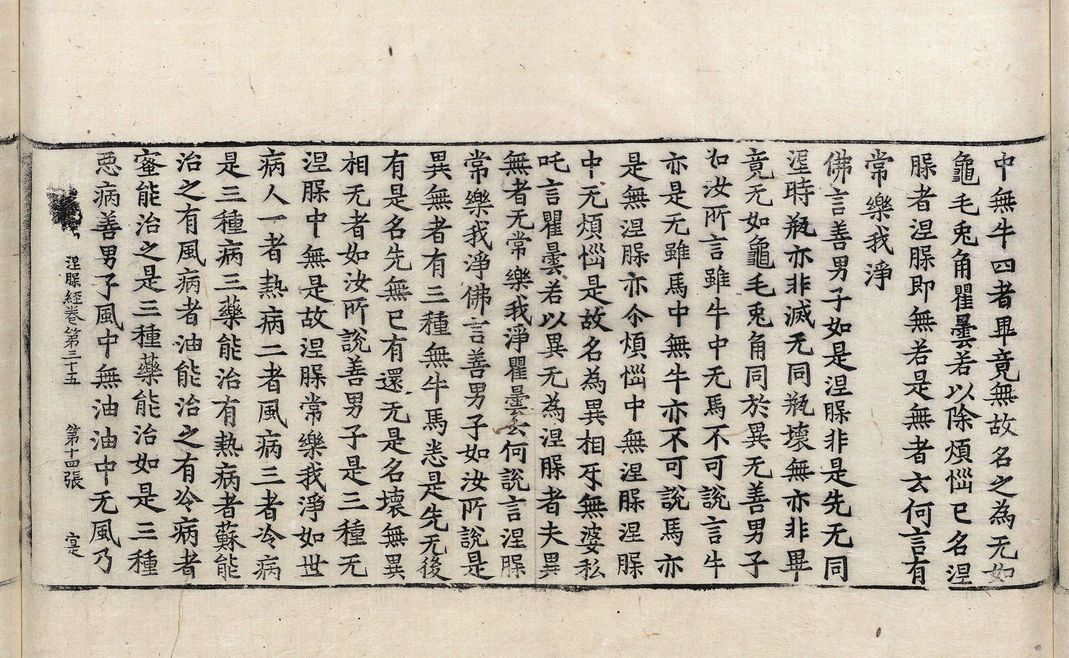 中無牛四者畢竟無故名之為无如
龜毛兎角瞿曇若以除煩惱已名涅
槃者涅槃即無若是無者云何言有
常樂我淨
佛言善男子如是涅槃非是先无同
埿時瓶亦非滅无同瓶壞無亦非畢
竟无如龜毛兎角同於異无善男子
如汝所言雖牛中无馬不可說言牛
亦是无雖馬中無牛亦不可說馬亦
是無涅槃亦尒煩惱中無涅槃涅槃
中无煩惱是故名為異相㸦無婆私
吒言瞿曇若以異无為涅槃者夫異
無者无常樂我淨瞿曇云何說言涅槃
常樂我淨佛言善男子如汝所說是
異無者有三種無牛馬悉是先无後
有是名先無已有還无是名壞無異
相无者如汝所說善男子是三種无
涅槃中無是故涅槃常樂我淨如世
病人一者熱病二者風病三者冷病
是三種病三藥能治有熱病者蘇能
治之有風病者油能治之有冷病者
蜜能治之是三種藥能治如是三種
惡病善男子風中無油油中无風乃
涅槃經卷第三十五 第十四張 㝎